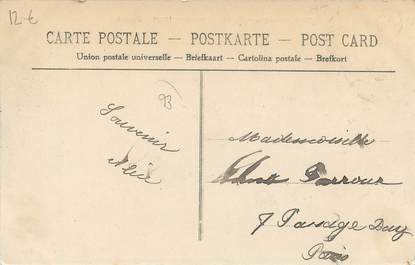 12 €
CARTE POSTALE — POSTKARTE — POST CARD
Union postale universelle — Briefkaart — Cartolina postale — Brefkort
93
Souvenir
Mademoiselle
7 Passage Davy
Paris